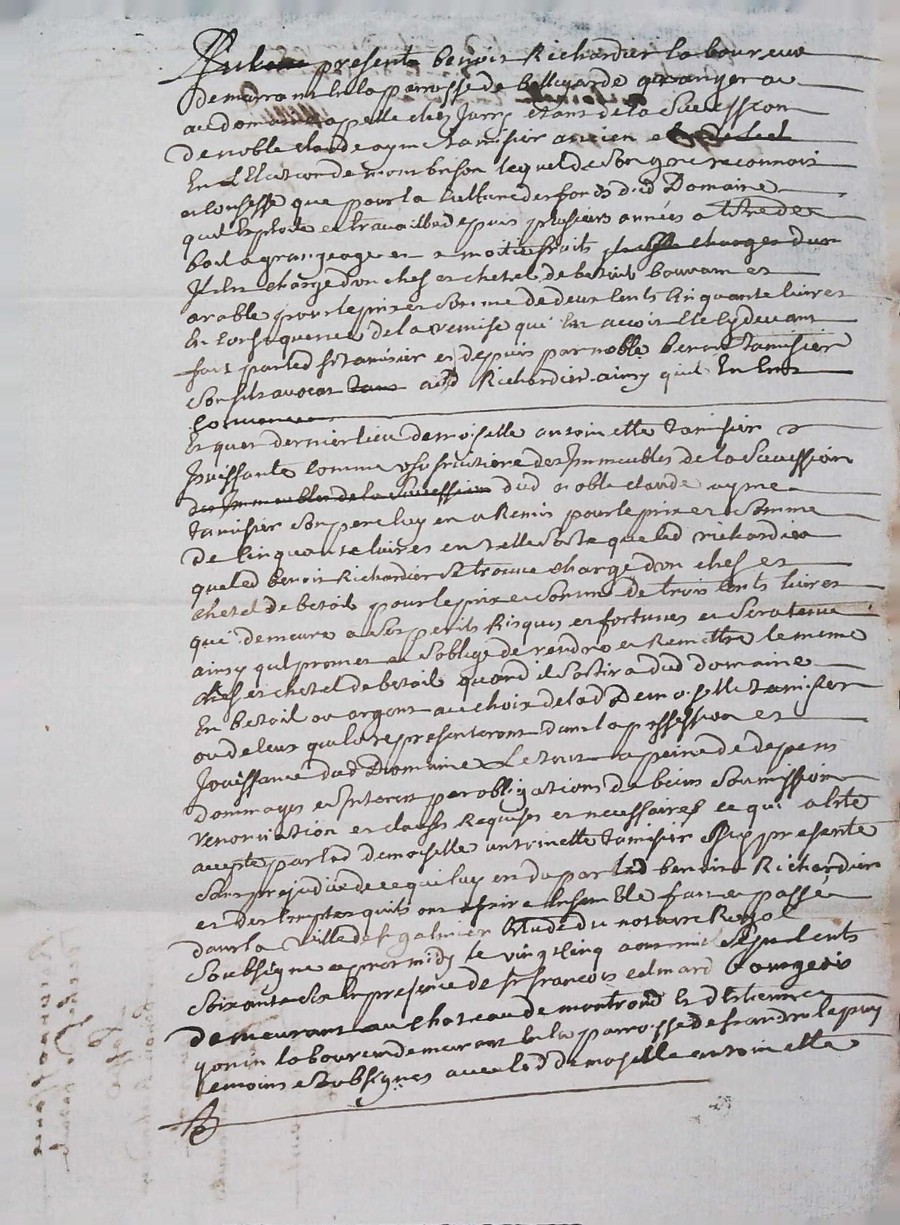 Fut presente benoist Richardier laboureur
demeurant en la parroisse de bellegarde granger au
au domaine appellé ches Jurry estant de la Succession
De noble claude aymé tamisier ancien
En L'Election de montbrison lequel de Son gré reconnois
et confesse que pour la culture des fonds dud Domaine
quil Exploite et travaille depuis plusieurs années a titre de
bail a grangeage et a moitie fruits charger d'un
Il Est chargé d'un chef et chetel de bestiaux bouvain et
arable pour le prix et Somme de deux Cents Cinquante livres
En Consequence de la remise qui luy en avoit Eté cy devant
fait par led Sr tamisier et depuis par noble benoist tamisier
Son fils avocat aud Richardier ainsy quil En Est
Convenu
Et que en dernier lieu demoiselle antoinette tamisier
Jouissante comme usufruitiere des Immeubles de la Succession
des Immeubles de la Succession dud noble claude aymé
tamisier Son pere luy en a Remis pour le prix et Somme
de Cinquante livres en telle Sorte que led richardier
que led benoist Richardier Se trouve chargé d'un chef et
chetel de betail pour le prix et Somme de trois Cents livres
qui demeure a Ses perils Risques et fortunes et Sera tenu
ainsy qu'il promet et S'oblige de rendre et Remettre le meme
chef et chetel de betail quand il Sortira dud domaine
En betail ou argent au choix de lad Demoiselle tamisier
ou de ceux qui la representeront dans la possession et
Jouissance dud Domaine Le tout a peine de depens
dommages et Interets par obligations de biens Soumission
renonciation et clauses Requises et necessaires ce qui a eté
accepté par lad demoiselle antoinette tamisier Icy presente
Sans prejudice de ce qui luy en du par led benoist Richardier
et des Comptes quils ont a faire Ensemble fait et passé
dans la Ville de St galmier Etude du notaire Royal
Soubsigne apres midy le vingt Cinq aoust mil Sept Cents
Soixante Six En presence de Sr francois edmard bourgeois
demeurant au chateau de montrond Et d'Etienne
gonin laboureur demeurant En la parroisse de St andré le puy
temoins Soubsignes avec lad demoiselle antoinette